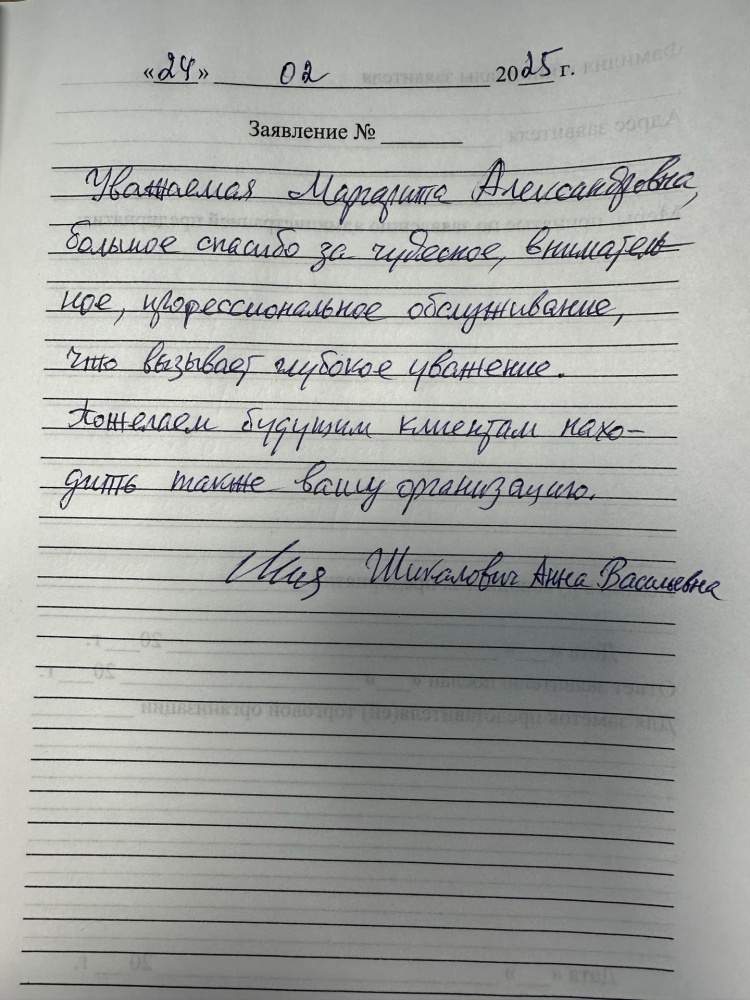 «24» 02 2025 г.
Заявление № ________
Уважаемая Маргарита Александровна,
большое спасибо за чудесное, вниматель-
ное, профессиональное обслуживание,
что вызывает глубокое уважение.
Пожелаем будущим клиентам нахо-
дить также вашу организацию.
Шикалович Анна Васильевна